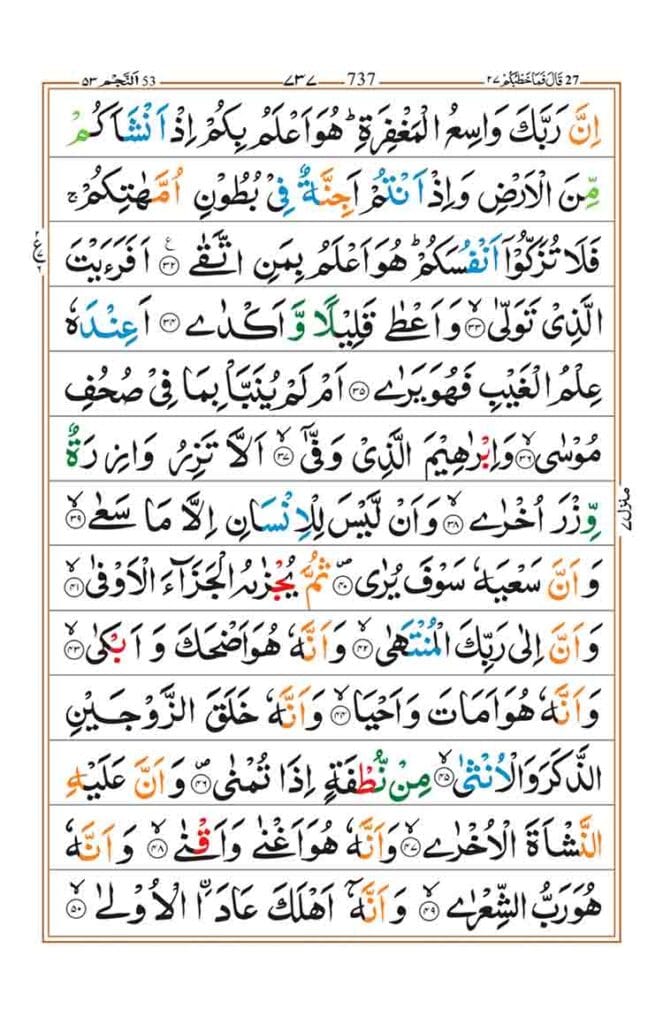 27 قَالَ فَمَا خَطْبُكُمْ ٢٧ 737 ٧٣٧ 53 اَلنَّجْم ٥٣
اِنَّ رَبَّكَ وَاسِعُ الْمَغْفِرَةِ ؕ هُوَ اَعْلَمُ بِكُمْ اِذْ اَنْشَاَكُمْ
مِّنَ الْاَرْضِ وَاِذْ اَنْتُمْ اَجِنَّةٌ فِىْ بُطُوْنِ اُمَّهٰتِكُمْ ۚ
فَلَا تُزَكُّوْۤا اَنْفُسَكُمْ ؕ هُوَ اَعْلَمُ بِمَنِ اتَّقٰى ﴿٣٢﴾ اَفَرَءَيْتَ
الَّذِىْ تَوَلّٰى ۙ﴿٣٣﴾ وَاَعْطٰى قَلِيْلًا وَّاَكْدٰى ﴿٣٤﴾ اَعِنْدَهٗ
عِلْمُ الْغَيْبِ فَهُوَ يَرٰى ﴿٣٥﴾ اَمْ لَمْ يُنَبَّاْ بِمَا فِىْ صُحُفِ
مُوْسٰى ۙ﴿٣٦﴾ وَاِبْرٰهِيْمَ الَّذِىْ وَفّٰٓى ۙ﴿٣٧﴾ اَلَّا تَزِرُ وَازِرَةٌ
وِّزْرَ اُخْرٰى ۙ﴿٣٨﴾ وَاَنْ لَّيْسَ لِلْاِنْسَانِ اِلَّا مَا سَعٰى ۙ﴿٣٩﴾
وَاَنَّ سَعْيَهٗ سَوْفَ يُرٰى ﴿٤٠﴾ ثُمَّ يُجْزٰٮهُ الْجَزَآءَ الْاَوْفٰى ۙ﴿٤١﴾
وَاَنَّ اِلٰى رَبِّكَ الْمُنْتَهٰى ۙ﴿٤٢﴾ وَاَنَّهٗ هُوَ اَضْحَكَ وَاَبْكٰى ۙ﴿٤٣﴾
وَاَنَّهٗ هُوَ اَمَاتَ وَاَحْيَا ۙ﴿٤٤﴾ وَاَنَّهٗ خَلَقَ الزَّوْجَيْنِ
الذَّكَرَ وَالْاُنْثٰى ۙ﴿٤٥﴾ مِنْ نُّطْفَةٍ اِذَا تُمْنٰى ﴿٤٦﴾ وَاَنَّ عَلَيْهِ
النَّشْاَةَ الْاُخْرٰى ۙ﴿٤٧﴾ وَاَنَّهٗ هُوَ اَغْنٰى وَاَقْنٰى ۙ﴿٤٨﴾ وَاَنَّهٗ
هُوَ رَبُّ الشِّعْرٰى ۙ﴿٤٩﴾ وَاَنَّهٗۤ اَهْلَكَ عَادَا۟ اۨلْاُوْلٰى ۙ﴿٥٠﴾
منزل ٧